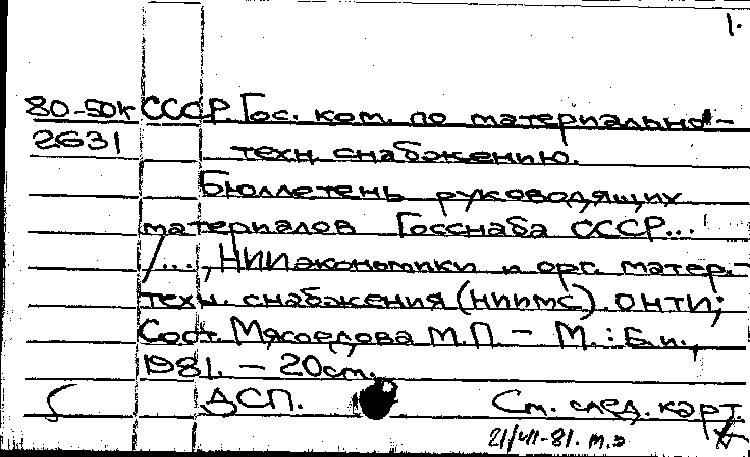 1.
80-50к СССР. Гос. ком. по материально-
2631 техн. снабжению.
Бюллетень руководящих
материалов Госснаба СССР...
/..., НИИ экономики и орг. матер.-
техн. снабжения (НИИМС). ОНТИ;
Сост. Мясоедова М.П. – М.: Б.и.,
1981. – 20см.
ДСП. См. след. карт.
21/VII-81. т.э